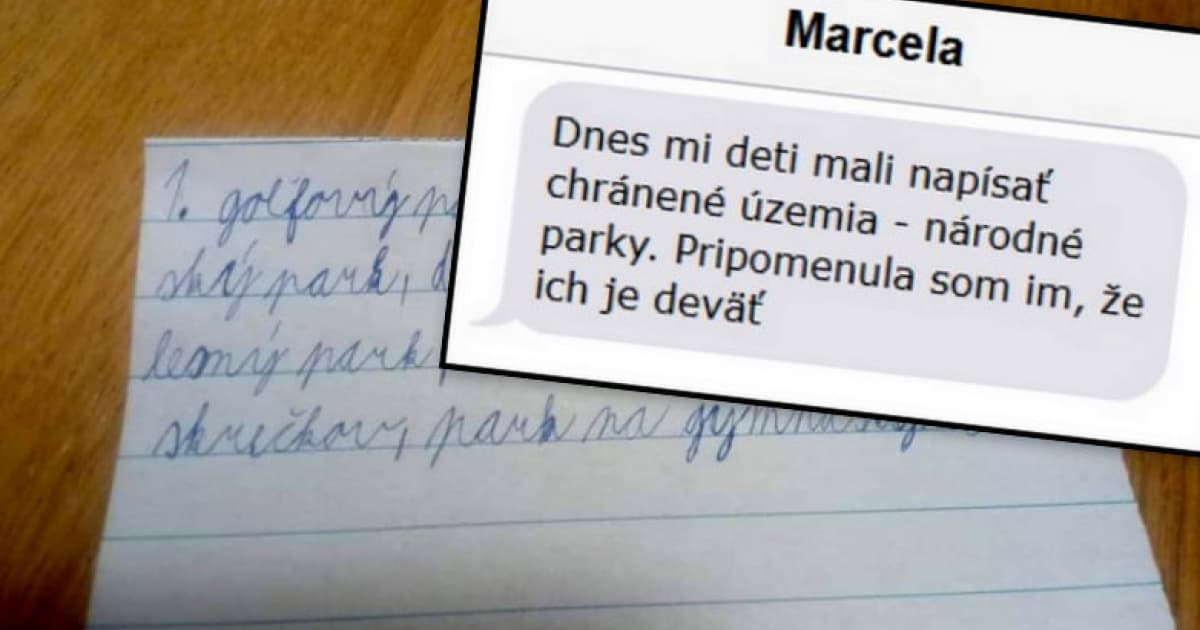 Marcela
Dnes mi deti mali napísať
chránené územia - národné
parky. Pripomenula som im, že
ich je deväť
1. golfový
ský park,
lesný park
skrečkov, park na